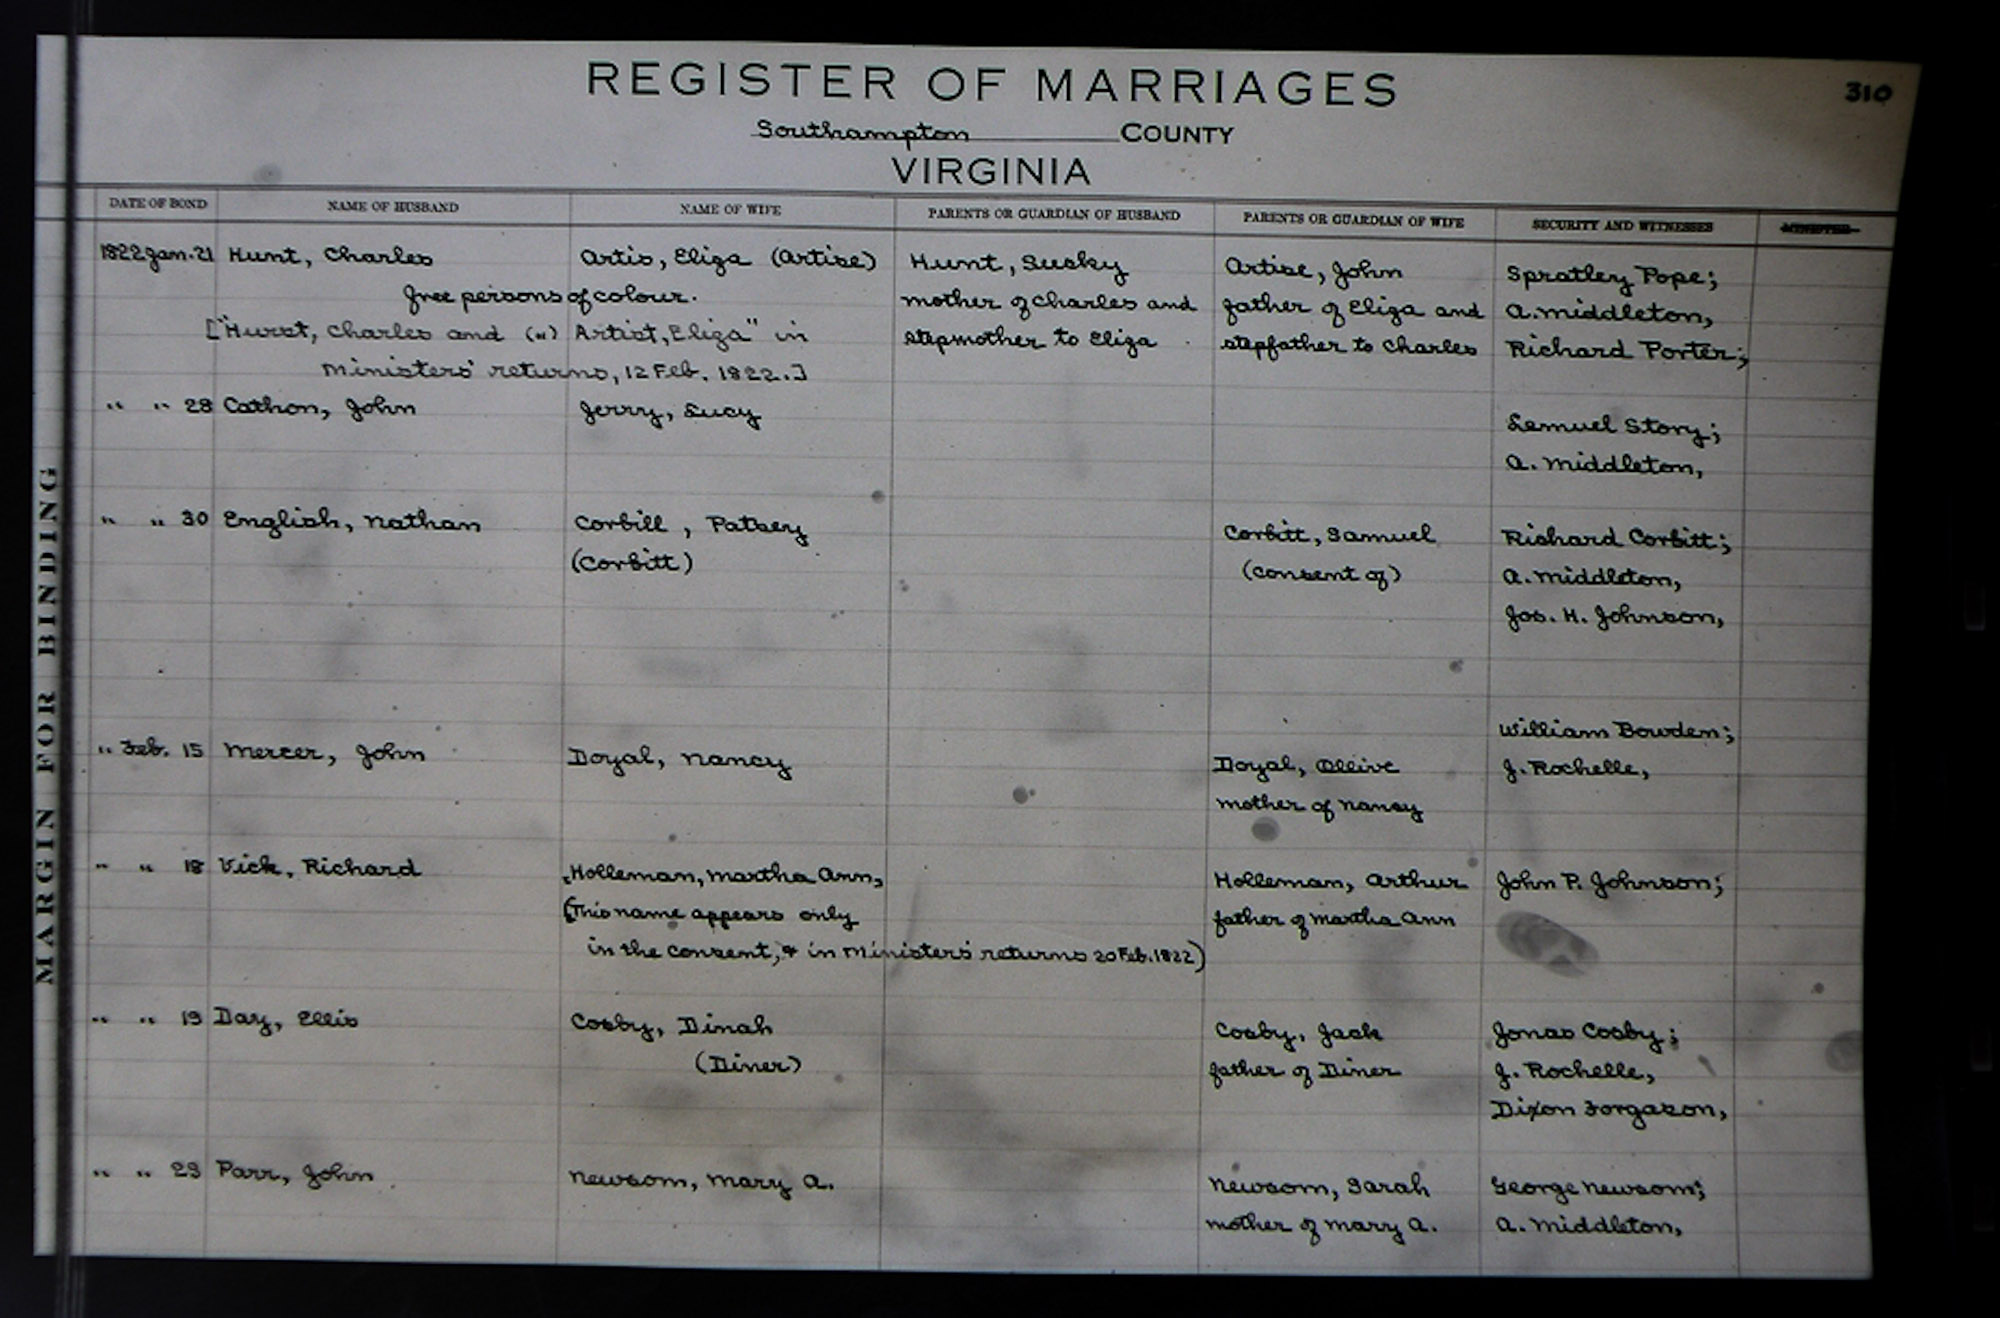 REGISTER OF MARRIAGES
310
Southampton COUNTY
VIRGINIA
DATE OF BOND NAME OF HUSBAND NAME OF WIFE PARENTS OR GUARDIAN OF HUSBAND PARENTS OR GUARDIAN OF WIFE SECURITY AND WITNESSES MINISTER
1822 Jan. 21 Hunt, Charles Artis, Eliza (Artise) Hunt, Sucky Artise, John Spratley Pope;
free persons of colour. mother of Charles and father of Eliza and A. Middleton,
["Hurst, Charles and (") Artist, Eliza" in stepmother to Eliza stepfather to Charles Richard Porter;
Ministers' returns, 12 Feb. 1822.]
" " 28 Cathon, John Jerry, Lucy Lemuel Story;
A. Middleton,
" " 30 English, Nathan Corbill, Patsey Corbitt, Samuel Richard Corbitt;
(Corbitt) (consent of) A. Middleton,
Jos. H. Johnson,
William Bowden;
" Feb. 15 Mercer, John Doyal, Nancy Doyal, Ollive J. Rochelle,
mother of Nancy
" " 18 Vick, Richard Holleman, Martha Ann, Holleman, Arthur John P. Johnson;
(This name appears only father of Martha Ann
in the consent, & in Ministers' returns 20 Feb. 1822)
" " 19 Day, Ellis Cosby, Dinah Cosby, Jack Jonas Cosby;
(Diner) father of Diner J. Rochelle,
Dixon Forgason,
" " 23 Parr, John Newsom, Mary A. Newsom, Sarah George Newsom;
mother of Mary A. A. Middleton,
MARGIN FOR BINDING